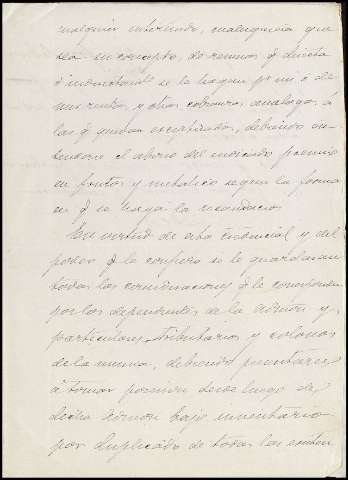 cualquier interesado, cualquiera que
sea su concepto, de remesas q directa
ó indirectamte se le hagan pr mi ó de
mis rentas, y otras cobranzas analogas á
las q quedan exceptuadas, debiendo en-
tenderse el abono del indicado premio
en frutos y metalico segun la forma
en q se haga la recaudacion
En virtud de esta credencial y del
poder q le confiero se le guardaran
todas las consideraciones q le correspondan
por los dependientes de la Admon y
particulares, tributarios y colonos
de la misma, debiendo presentarse
á tomar posesion desde luego de
dicha Admon bajo inventario
por duplicado de todas las existen